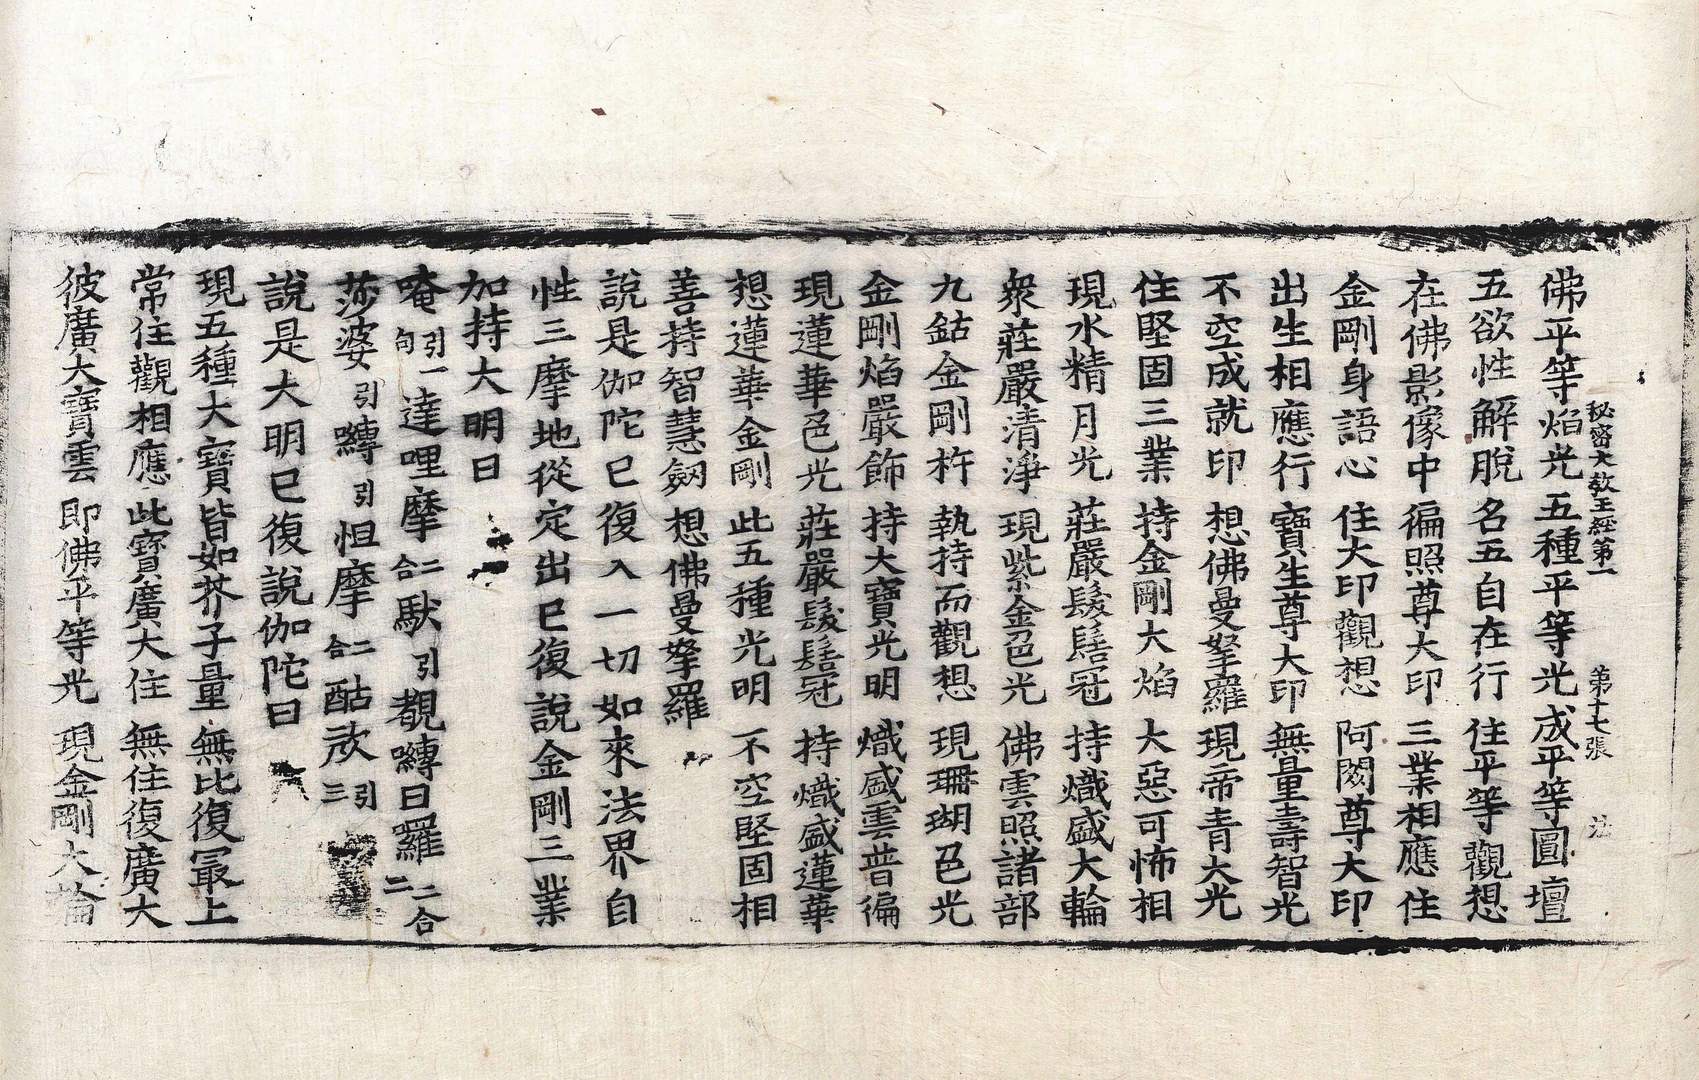 佛平等焰光　五種平等光　成平等圓壇
秘密大教王經第一　第十七張　法
五欲性解脫　名五自在行　住平等觀想
在佛影像中　徧照尊大印　三業相應住
金剛身語心　住大印觀想　阿閦尊大印
出生相應行　寶生尊大印　無量壽智光
不空成就印　想佛曼拏羅　現帝青大光
住堅固三業　持金剛大焰　大惡可怖相
現水精月光　莊嚴髮髻冠　持熾盛大輪
衆莊嚴清淨　現紫金色光　佛雲照諸部
九鈷金剛杵　執持而觀想　現珊瑚色光
金剛焰嚴飾　持大寶光明　熾盛雲普徧
現蓮華色光　莊嚴髮髻冠　持熾盛蓮華
想蓮華金剛　此五種光明　不空堅固相
善持智慧劔　想佛曼拏羅
說是伽陀已復入一切如來法界自
性三摩地從定出已復說金剛三業
加持大明曰
唵引一句達哩摩二合馱引覩嚩日囉二合二
莎婆引嚩引怛摩二合酤㰠引三
說是大明已復說伽陀曰
現五種大寶　皆如芥子量　無比復冣上
常住觀相應　此寶廣大住　無住復廣大
彼廣大寶雲　即佛平等光　現金剛大輪